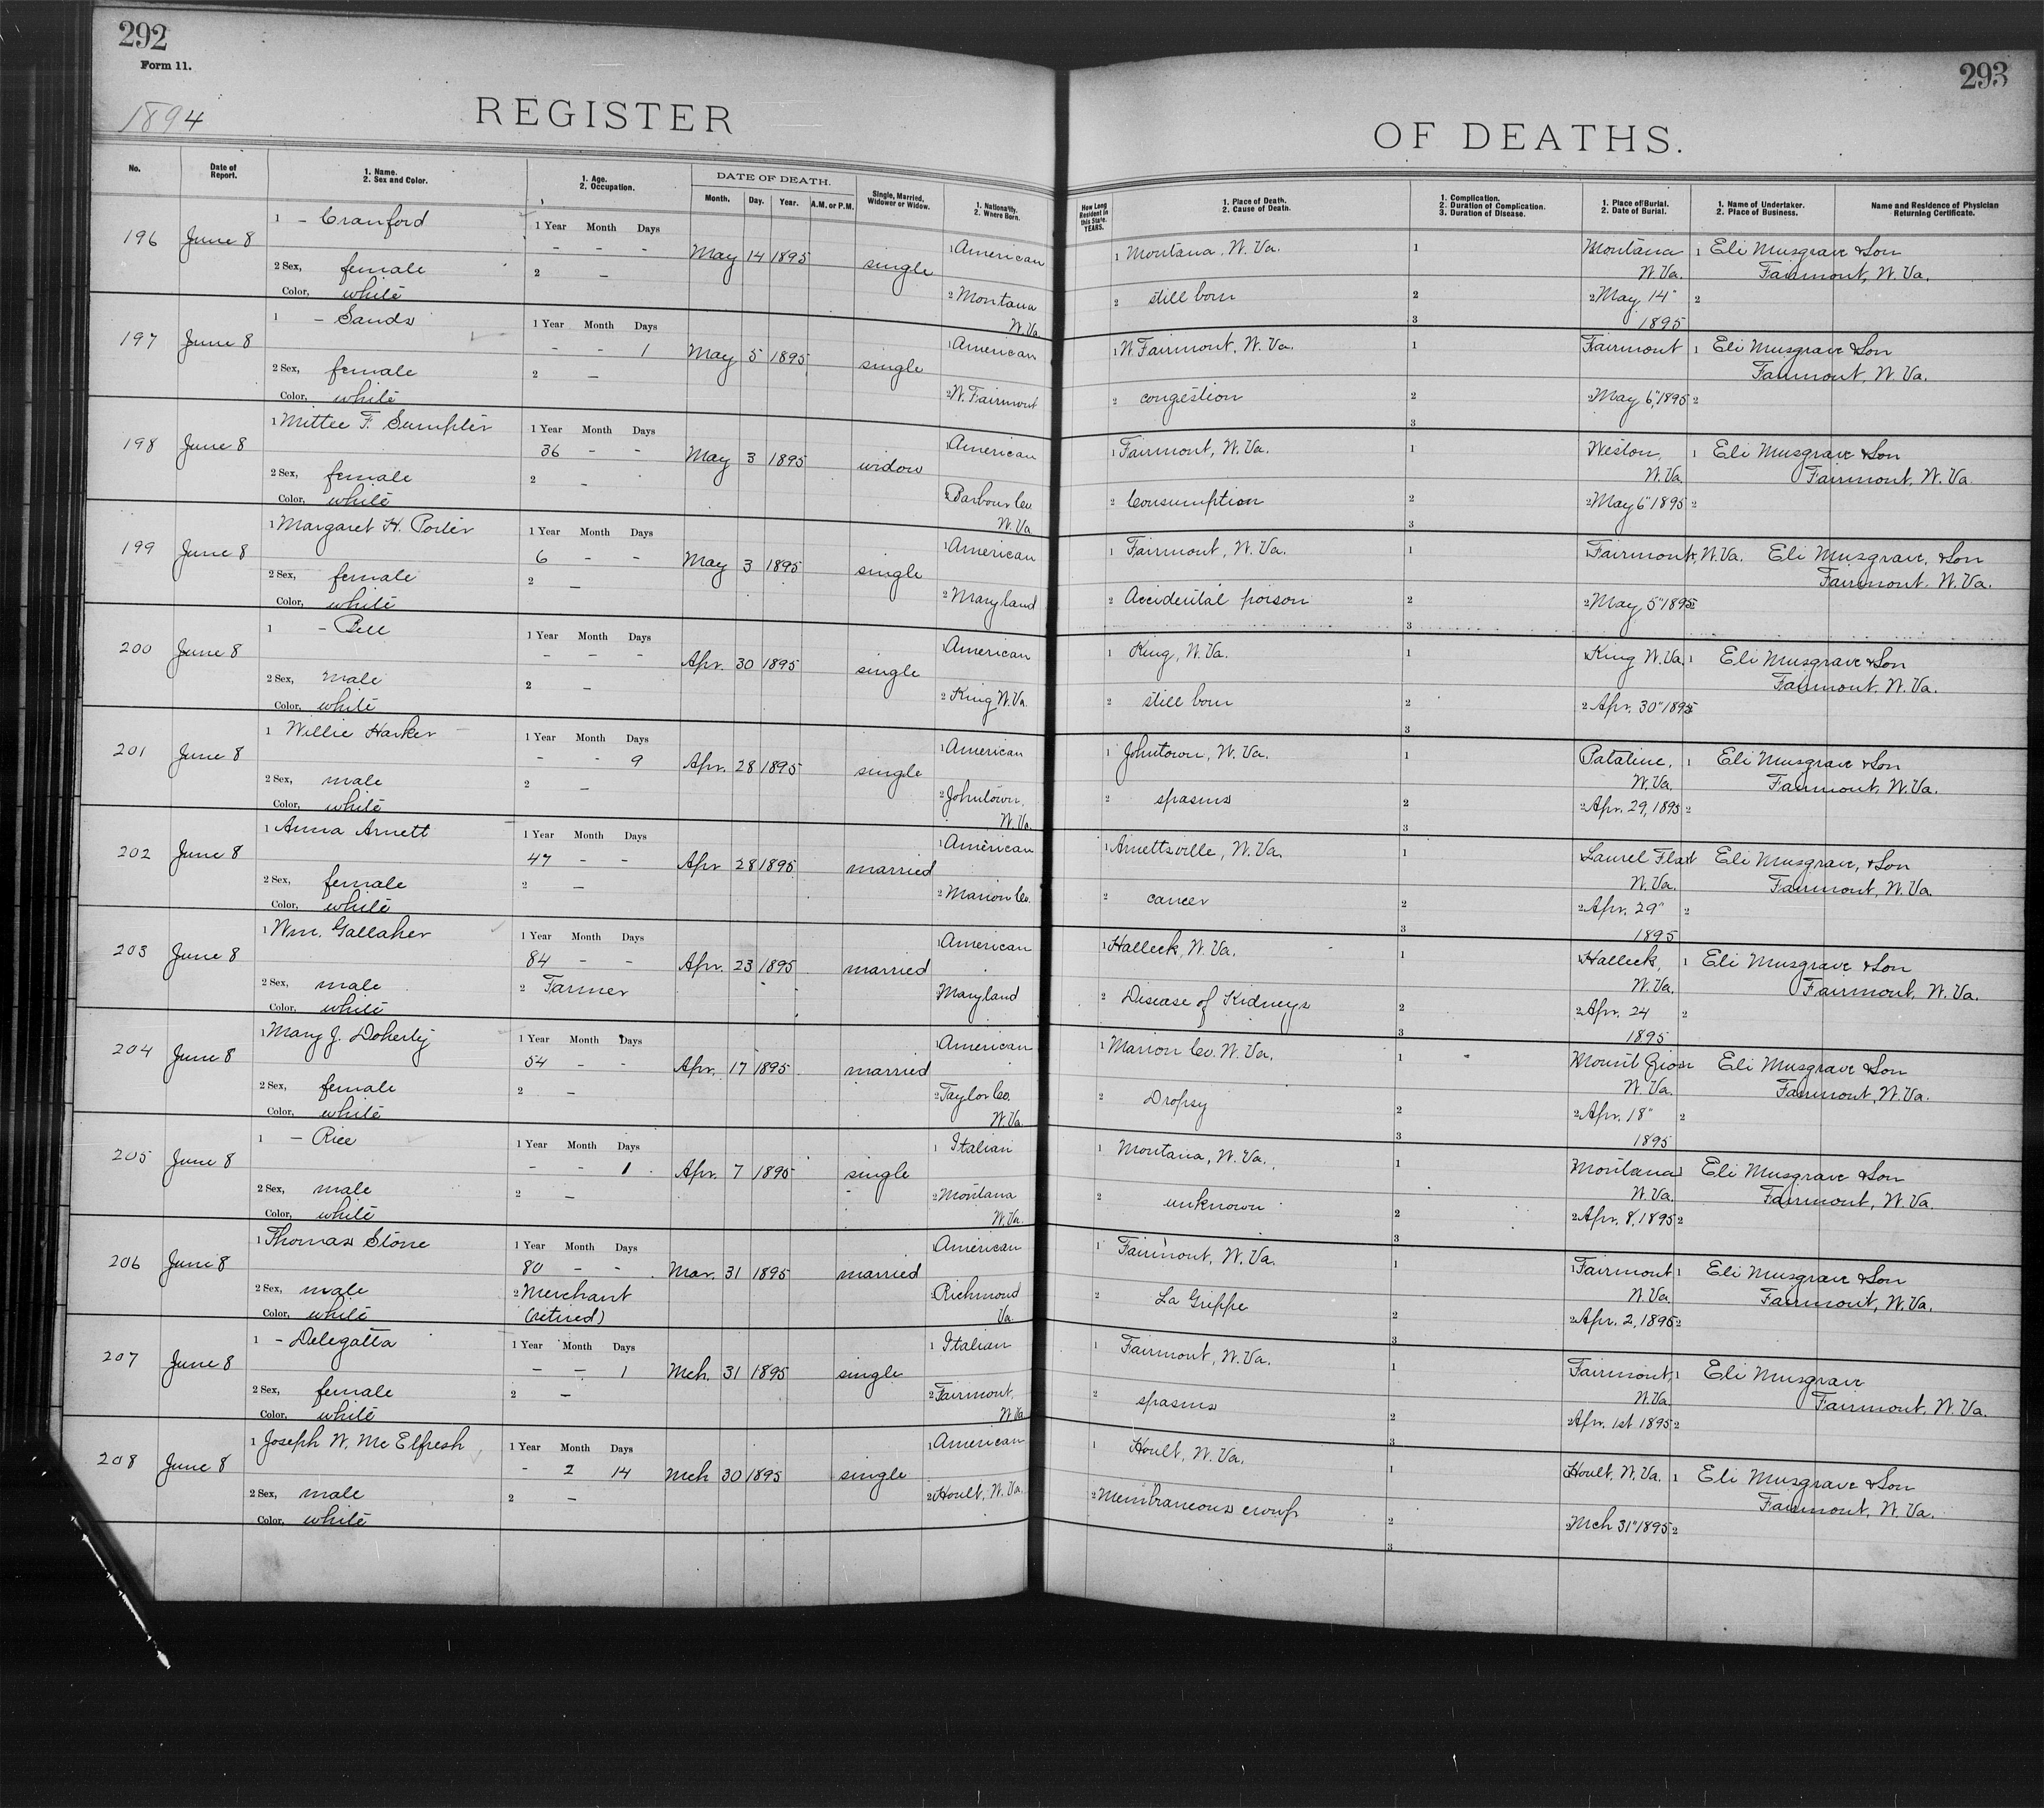 292
Form 11.
1894
REGISTER
293
OF DEATHS.
No.
Date of Report.
1. Name.
2. Sex and Color.
1. Age.
2. Occupation.
DATE OF DEATH.
Month. Day. Year. A.M. or P.M.
Single, Married, Widower or Widow.
1. Nationality.
2. Where Born.
How Long Resident in this State. YEARS.
1. Place of Death.
2. Cause of Death.
1. Complication.
2. Duration of Complication.
3. Duration of Disease.
1. Place of Burial.
2. Date of Burial.
1. Name of Undertaker.
2. Place of Business.
Name and Residence of Physician Returning Certificate.
1 - Cranford 1 Year Month Days
196 June 8 - - - May 14 1895 single 1 American 1 Montana, W. Va. 1 Montana 1 Eli Musgrave & Son
W. Va. Fairmont, W. Va.
2 Sex, female 2 - 2 Montana 2 still born 2 2 May 14" 2
Color, white W. Va. 3 1895
1 - Sands 1 Year Month Days
197 June 8 - - 1 May 5 1895 single 1 American 1 W. Fairmont, W. Va. 1 Fairmont 1 Eli Musgrave & Son
Fairmont, W. Va.
2 Sex, female 2 - 2 W. Fairmont 2 congestion 2 2 May 6", 1895 2
Color, white 3
1 Mittee F. Sumpter 1 Year Month Days
198 June 8 36 - - May 3 1895 widow 1 American 1 Fairmont, W. Va. 1 Weston, 1 Eli Musgrave & Son
W. Va. Fairmont, W. Va.
2 Sex, female 2 - 2 Barbour Co. 2 Consumption 2 2 May 6" 1895 2
Color, white W. Va. 3
1 Margaret H. Porter 1 Year Month Days
199 June 8 6 - - May 3 1895 single 1 American 1 Fairmont, W. Va. 1 Fairmont, W. Va. Eli Musgrave, & Son
Fairmont, W. Va.
2 Sex, female 2 - 2 Maryland 2 Accidental poison 2 2 May 5" 1895 2
Color, white 3
1 - Bell 1 Year Month Days
200 June 8 - - - Apr. 30 1895 single American 1 King, W. Va. 1 King W. Va. 1 Eli Musgrave & Son
Fairmont, W. Va.
2 Sex, male 2 - 2 King W. Va. 2 still born 2 2 Apr. 30" 1895
Color, white 3
1 Willie Harker 1 Year Month Days
201 June 8 - - 9 Apr. 28 1895 single 1 American 1 Johntown, W. Va. 1 Pataline, 1 Eli Musgrave & Son
W. Va. Fairmont, W. Va.
2 Sex, male 2 - 2 Johntown, 2 spasms 2 2 Apr. 29, 1895 2
Color, white W. Va. 3
1 Anna Arnett 1 Year Month Days
202 June 8 47 - - Apr 28 1895 married 1 American 1 Arnettsville, W. Va. 1 Laurel Flat Eli Musgrave, & Son
W. Va. Fairmont, W. Va.
2 Sex, female 2 - 2 Marion Co. 2 cancer 2 2 Apr. 29" 2
Color, white 3 1895
1 Wm. Gallaher 1 Year Month Days
203 June 8 84 - - Apr. 23 1895 married 1 American 1 Halleck, W. Va. 1 Halleck, 1 Eli Musgrave & Son
W. Va. Fairmont, W. Va.
2 Sex, male 2 Farmer 2 Maryland 2 Disease of Kidneys 2 2 Apr. 24 2
Color, white 3 1895
1 Mary J. Doherty 1 Year Month Days
204 June 8 54 - - Apr. 17 1895 married 1 American 1 Marion Co. W. Va. 1 Mount Zion Eli Musgrave & Son
W. Va. Fairmont, W. Va.
2 Sex, female 2 - 2 Taylor Co. 2 Dropsy 2 2 Apr. 18" 2
Color, white W. Va. 3 1895
1 - Rice 1 Year Month Days
205 June 8 - - 1 Apr. 7 1895 single 1 Italian 1 Montana, W. Va. 1 Montana Eli Musgrave & Son
W. Va. Fairmont, W. Va.
2 Sex, male 2 - 2 Montana 2 unknown 2 2 Apr. 8, 1895 2
Color, white W. Va. 3
1 Thomas Stone 1 Year Month Days
206 June 8 80 - - Mar. 31 1895 married American 1 Fairmont, W. Va. 1 1 Fairmont 1 Eli Musgrave & Son
W. Va. Fairmont, W. Va.
2 Sex, male 2 Merchant 2 Richmond 2 La Grippe 2 2 Apr. 2, 1895 2
Color, white (retired) Va. 3
1 - Delegatta 1 Year Month Days
207 June 8 - - 1 Mch. 31 1895 single 1 Italian 1 Fairmont, W. Va. 1 Fairmont, 1 Eli Musgrave
W. Va. Fairmont, W. Va.
2 Sex, female 2 - 2 Fairmont, 2 spasms 2 2 Apr. 1st 1895 2
Color, white W. Va. 3
1 Joseph W. McElfresh 1 Year Month Days
208 June 8 - 2 14 Mch 30 1895 single 1 American 1 Hoult, W. Va. 1 Hoult, W. Va. 1 Eli Musgrave & Son
Fairmont, W. Va.
2 Sex, male 2 - 2 Hoult, W. Va. 2 Membraneous croup 2 2 Mch 31" 1895 2
Color, white 3